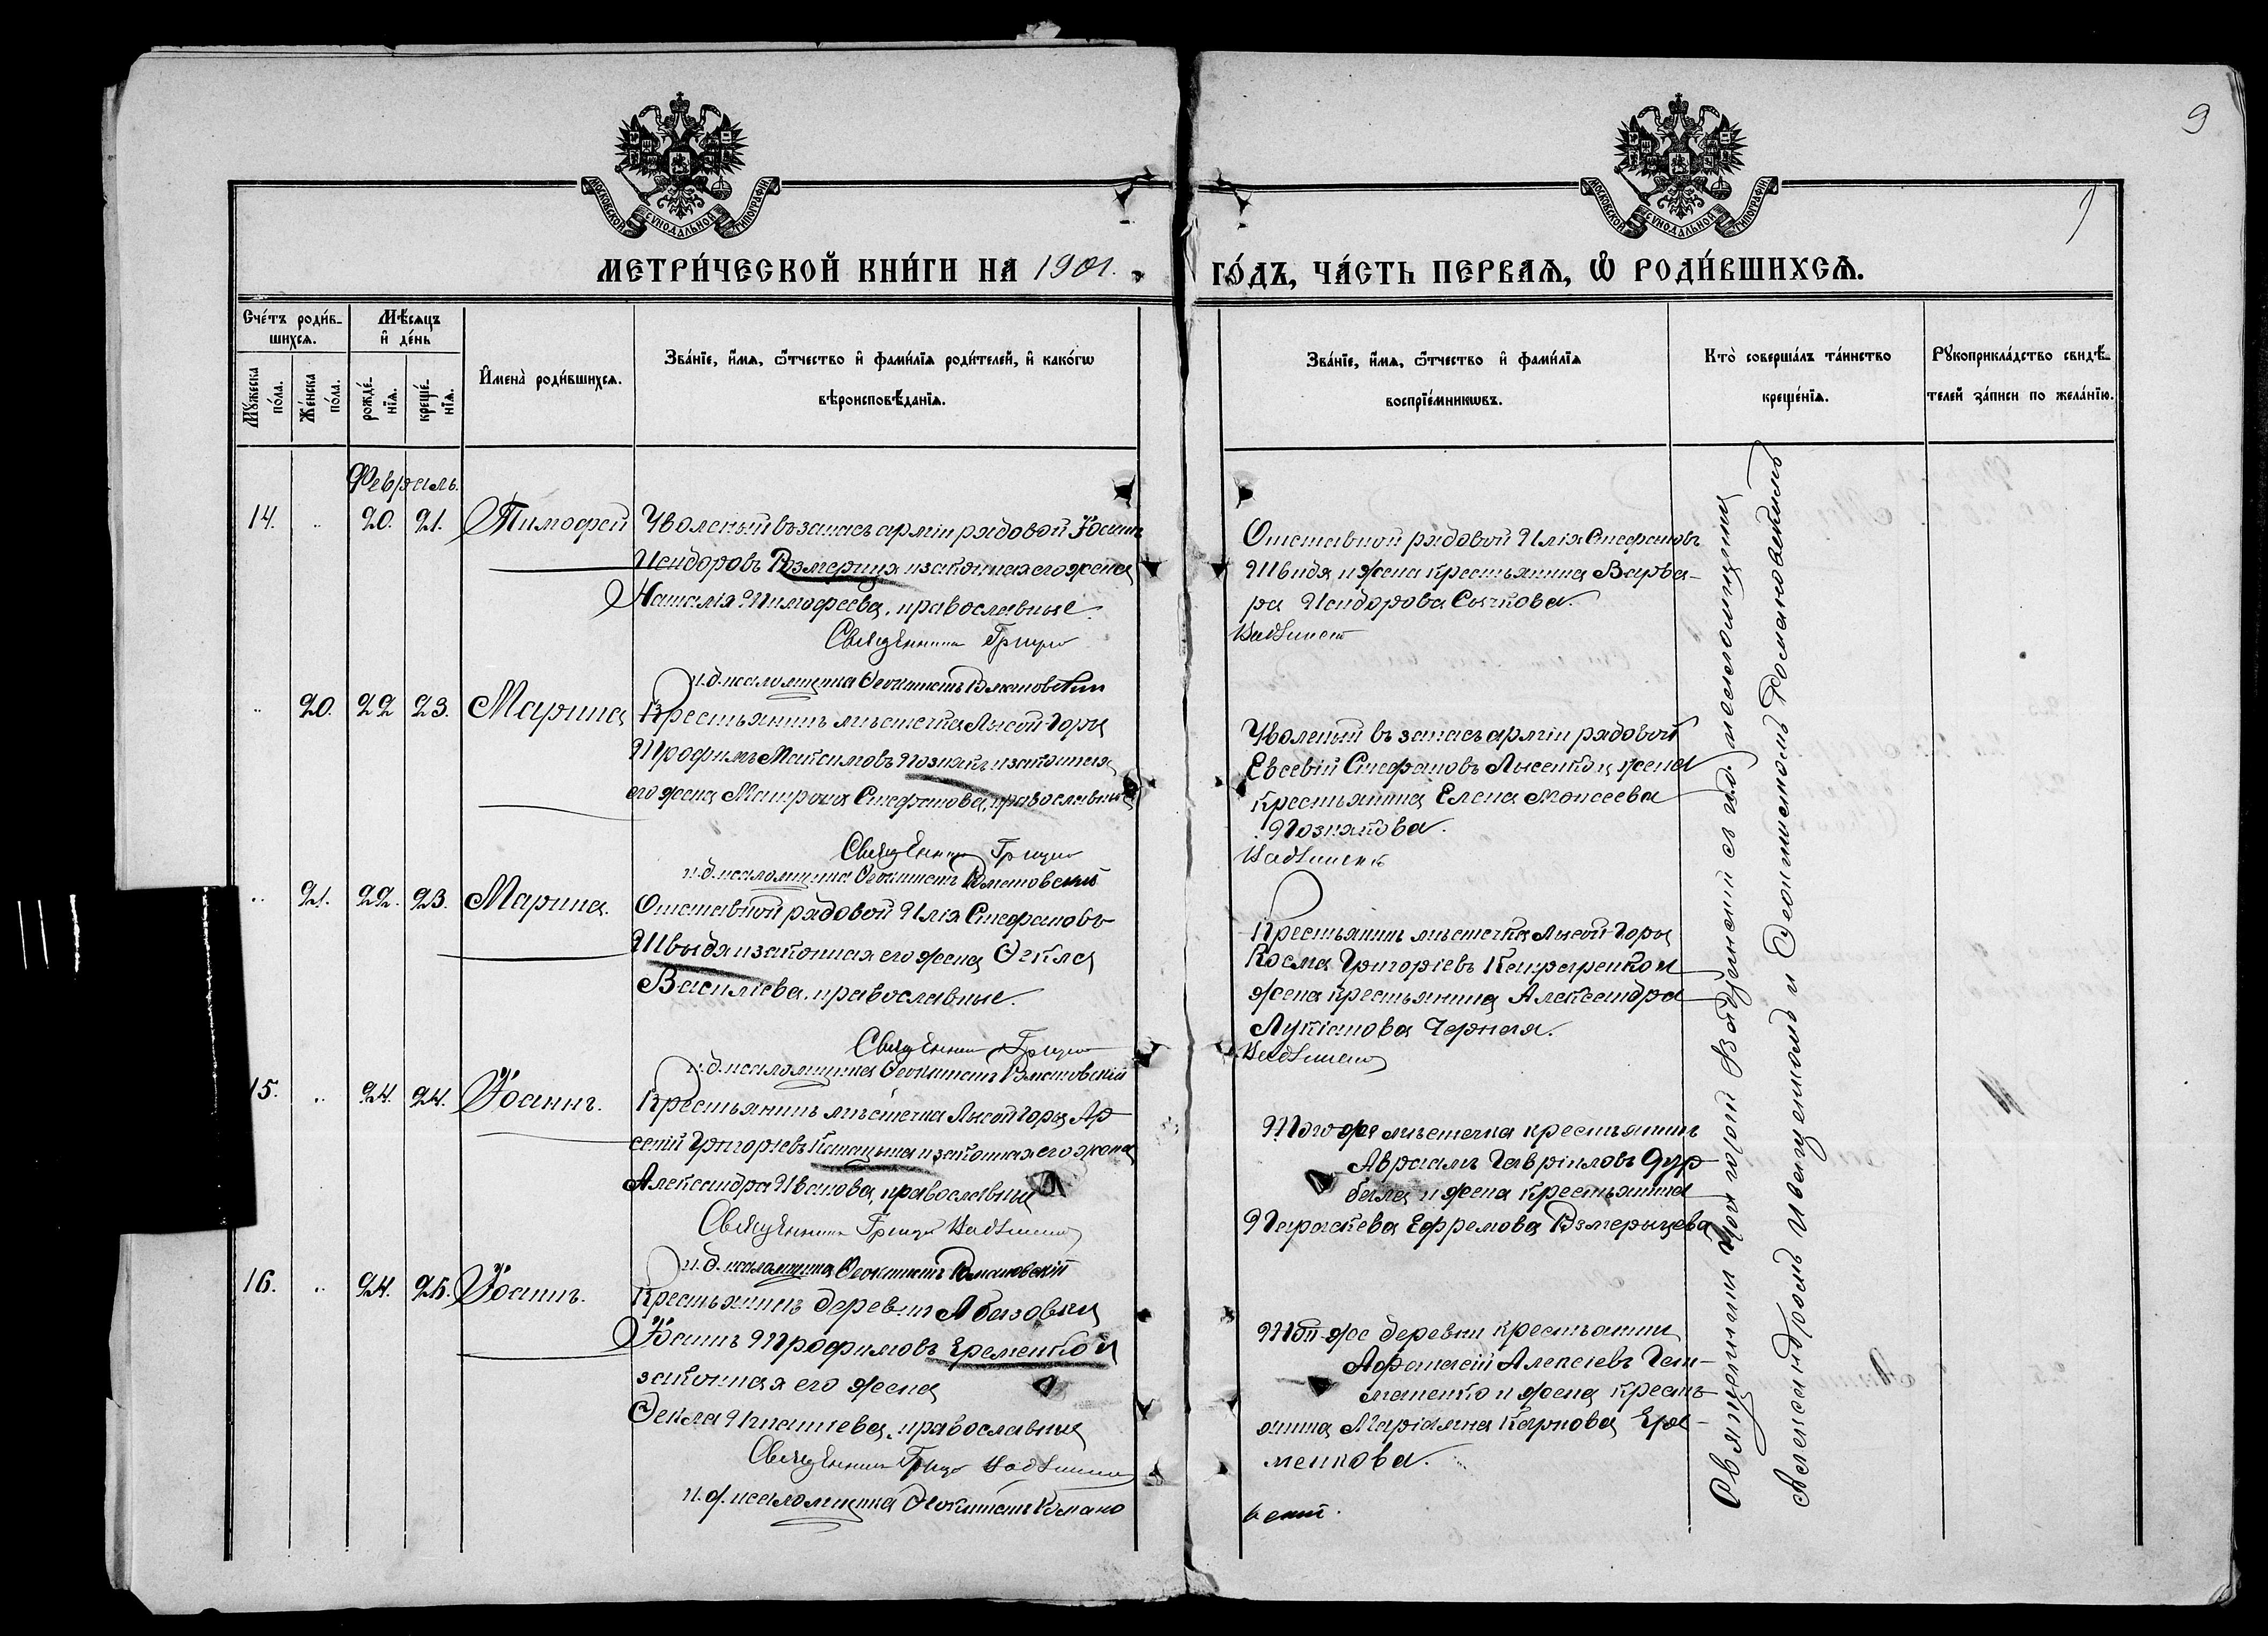 9
МОСКОВСКОЙ СѴНОДАЛЬНОЙ ТИПОГРАФІИ
МОСКОВСКОЙ СѴНОДАЛЬНОЙ ТИПОГРАФІИ
МЕТРИ́ЧЕСКОЙ КНИ́ГИ НА 1901. ГО́ДЪ, ЧА́СТЬ ПЕРВАѦ, Ѽ РОДИ́ВШИХСѦ.
Сче́тъ роди́в-
шихсѧ.
Мꙋ́жеска по́ла.
Же́нска по́ла.
Мѣ́сѧцъ
и҆ де́нь
рожде́-
нїѧ.
креще́-
нїѧ.
И҆мена̀ роди́вшихсѧ.
Зва́нїе, и҆́мѧ, ѻ҆́тчество и҆ фами́лїѧ роди́телей, и҆ како́гѡ
вѣроисповѣ́данїѧ.
Зва́нїе, и҆́мѧ, ѻ҆́тчество и҆ фами́лїѧ
воспрїе́мникѡвъ.
Кто̀ соверша́лъ та́инство
креще́нїѧ.
Рꙋкоприкла́дство свидѣ́-
телей за́писи по жела́нїю.
Февраль.
14. " 20. 21. Тимофей
Уволеный въ запасъ арміи рядовой Іоаннъ
Исидоровъ Взмерица и законная его жена
Наталія Тимофеева, православные.
Священникъ Григорій
и.д. псаломщика Феоктистъ Романовскій
Отставной рядовой Илія Стефановъ
Швидя и жена крестьянина Варва-
ра Исидорова Сычкова.
" 20. 22 23. Марина
Крестьянинъ мѣстечка Лысой-Горы
Трофимъ Максимовъ Познякъ и законная
его жена Матрона Стефанова, православные
Священникъ Григорій
и.д. псаломщика Феоктистъ Романовскій
Уволеный въ запасъ арміи рядовой
Евсевій Стефановъ Лысенко и жена
крестьянина Елена Моисеева
Познякова.
" 21. 22. 23. Марина.
Отставной рядовой Илія Стефановъ
Швыдя и законная его жена Фекла
Василіева, православные.
Священникъ Григорій
и.д. псаломщика Феоктистъ Романовскій
Крестьянинъ мѣстечка Лысой-Горы
Косма Григоріевъ и
жена крестьянина Александра
Лукіанова Черная.
15. " 24. 24. Іоаннъ.
Крестьянинъ мѣстечка Лысой Горы Ар-
сеній Григоріевъ и законная его жена
Александра Иванова, православные
Священникъ Григорій
и.д. псаломщика Феоктистъ Романовскій
Того-же мѣстечка крестьянинъ
Авраамъ Гавріиловъ Дур-
бала и жена крестьянина
Параскева Ефремова Взмерицева
16. " 24. 25. Іоаннъ.
Крестьянинъ деревни Абазовки
Іоаннъ Трофимовъ Еременко и
законная его жена
Фекла Игнатіева, православные
Священникъ Григорій
и.д. псаломщика Феоктистъ Романо
вскій.
Той-же деревни крестьянинъ
Афанасій Алексіевъ Геть-
маненко и жена кресть-
янина Маріамна Карпова Ере-
менкова.
Священникъ Григорій съ и.д. псаломщика
Александромъ Иващенкомъ и Феоктистомъ Романовскимъ